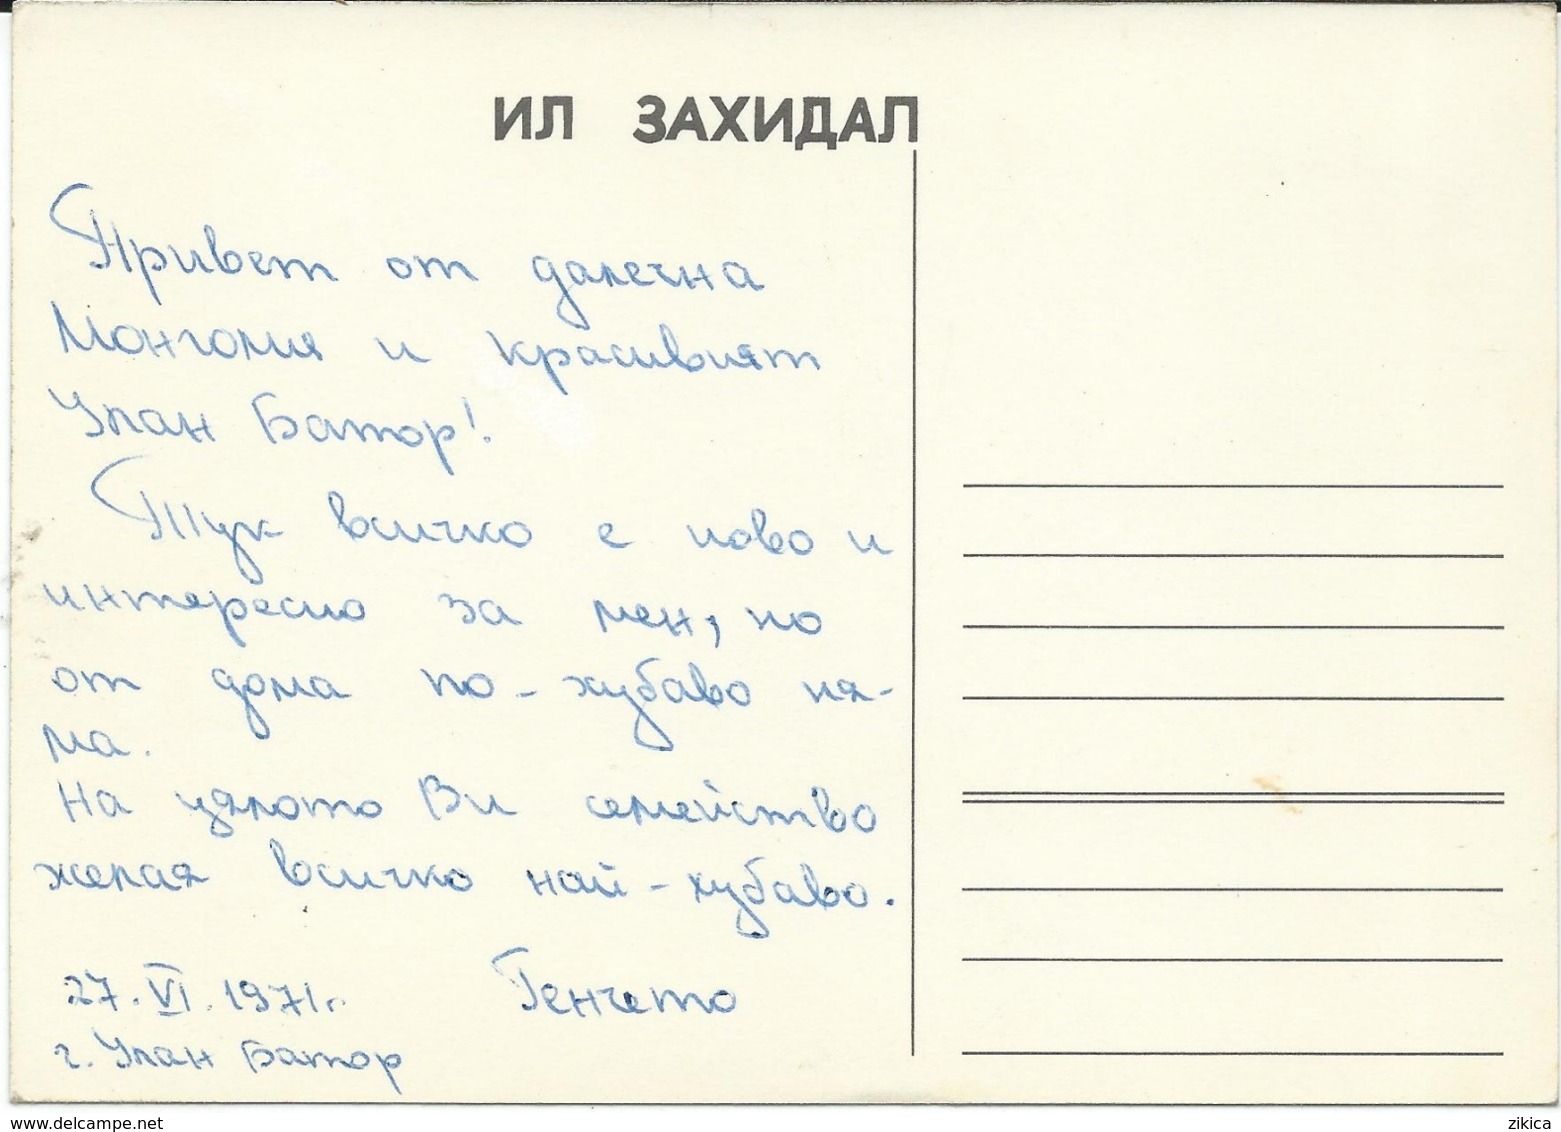 ИЛ ЗАХИДАЛ
Привет от далечна
Монголия и красивият
Улан Батор!
Тук всичко е ново и
интересно за мен, но
от дома по-хубаво ня-
ма.
На цялото Ви семейство
желая всичко най-хубаво.
27.VI.1971г. Генчето
г. Улан Батор
www.delcampe.net
zikica